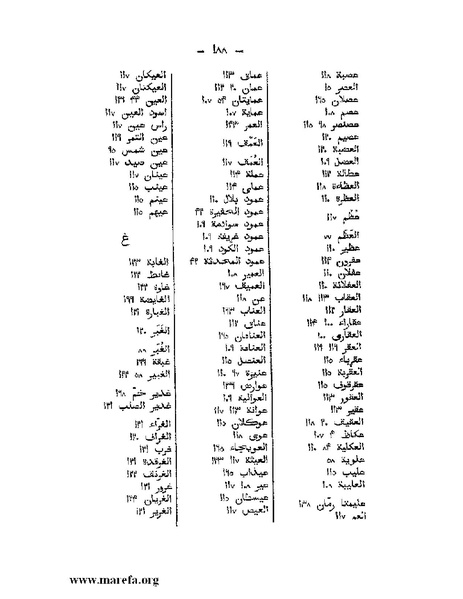 – ١٨٨ –
عصبة ١١٨
العصر ١٥
عصلان ١٦٥
عصم ١٠٨
عصنصر ٩٨ ١١٥
عصيم ١٢٠
العصبة ١٢٠
العصل ١٠٦
عطالة ١١٤
العظاءة ١١٨
العظرة ١١٠
عظم ١١٧
العظم ٧٧
عظير ١١٠
عفرين ١١٤
عفلان ١١٠
العفلانة ١١٠
العقاب ١١٣ ١١٨
العقار ١١٢
عقاراء ١٠٠ ١١٤
العقاري ١٠٠
العقر ١١٩ ١١٤
عقرباء ١١٥
العقربة ١١٥
عقرقوف ١١٥
العقور ١١٣
عقير ١١٣
العقيق ٢٠ ١١٨
عكاظ ٤ ١٠٧
العكلية ٨٤ ١١٠
علوية ٥٨
عليب ١١٥
العليبة ١٠٨
عليمتا رمّان ١٣٨
انعم ١١٧
عماى ١١٣
عمان ٢٠ ١١٤
عمايتان ٥٤ ١٠٧
عماية ١٠٧
العمر ١٤٣
العمق ١١٩
العمق ١١٧
عملة ١١٤
عملى ١١٤
عمود بلال ١١٠
عمود الحفيرة ٤٤
عمود سوادمة ١٠٩
عمود غريفة ١٠٩
عمود الكود ١٠٩
عمود المحدثة ٤٤
العمير ١٠٨
العميق ١٦٧
عن ١١٨
العناب ١٦٣
عنابى ١١٢
العنابان ١٦٥
العنابة ١٠٩
العنصل ١١٥
عنيزة ٩٧ ١١٠
عوارض ١٣٦
العوالية ١٠٩
عوانة ١١٣ ١١٧
عوكلان ١١٥
عوى ١١٨
العويجاء ١٦٥
العيثة ١١٧ ١٦٣
عيذاب ١٦٥
عير ١٠٨ ١١٧
عيسطان ١١٥
العيص ١١٧
العيكان ١١٧
العيكتان ١١٧
العين ٤٤ ١٢٩
اسود العين ١١٧
راس عين ١١٧
عين التمر ١١٩
عين شمس ٩٥
عين صيد ١١٧
عينان ١١٧
عينب ١١٥
عينم ١١٥
عيهم ١١٥
غ
الغابة ١٢٣
غائط ١٢٤
غاوة ١٢٢
الغايضة ١٢٩
الغبارة ١٢١
الغبر ١٢٠
الغبر ٨٩
غبقة ١٢٩
الغبير ٥٨ ١٢٤
غدير خمّ ١٦٨
غدير الصلب ١٢١
الغراء ١٢١
الغراف ١٢٠
غرب ١٢١
الغرقدة ١٢١
الغرنق ١٢٢
غرور ١٢١
الغريان ١٢٤
الغرير ١٢١
www.marefa.org